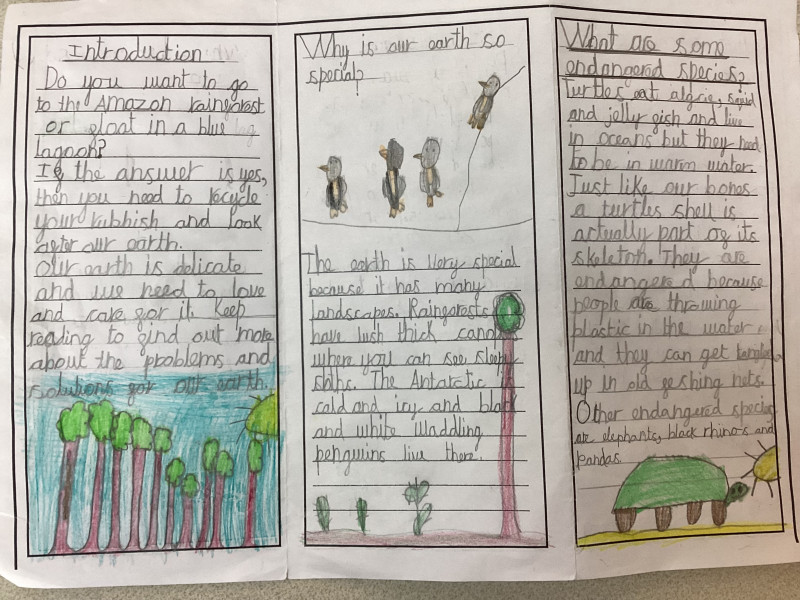 Introduction
Do you want to go
to the Amazon rainforest
or float in a blue
lagoon?
If the answer is yes,
then you need to recycle
your rubbish and look
after our earth.
Our earth is delicate
and we need to love
and care for it. Keep
reading to find out more
about the problems and
solutions for our earth.
Why is our earth so
special?
The earth is very special
because it has many
landscapes. Rainforests
have lush thick canopy
where you can see sleepy
sloths. The Antarctic is
cold and icy and black
and white waddling
penguins live there.
What are some
endangered species?
Turtles eat algie, squid
and jelly fish and live
in oceans but they need
to be in warm water.
Just like our bones
a turtles shell is
actually part of its
skeleton. They are
endangered because
people are throwing
plastic in the water
and they can get
up in old feshing nets.
Other endangered species
are elephants, black rhino-s and
Pandas.